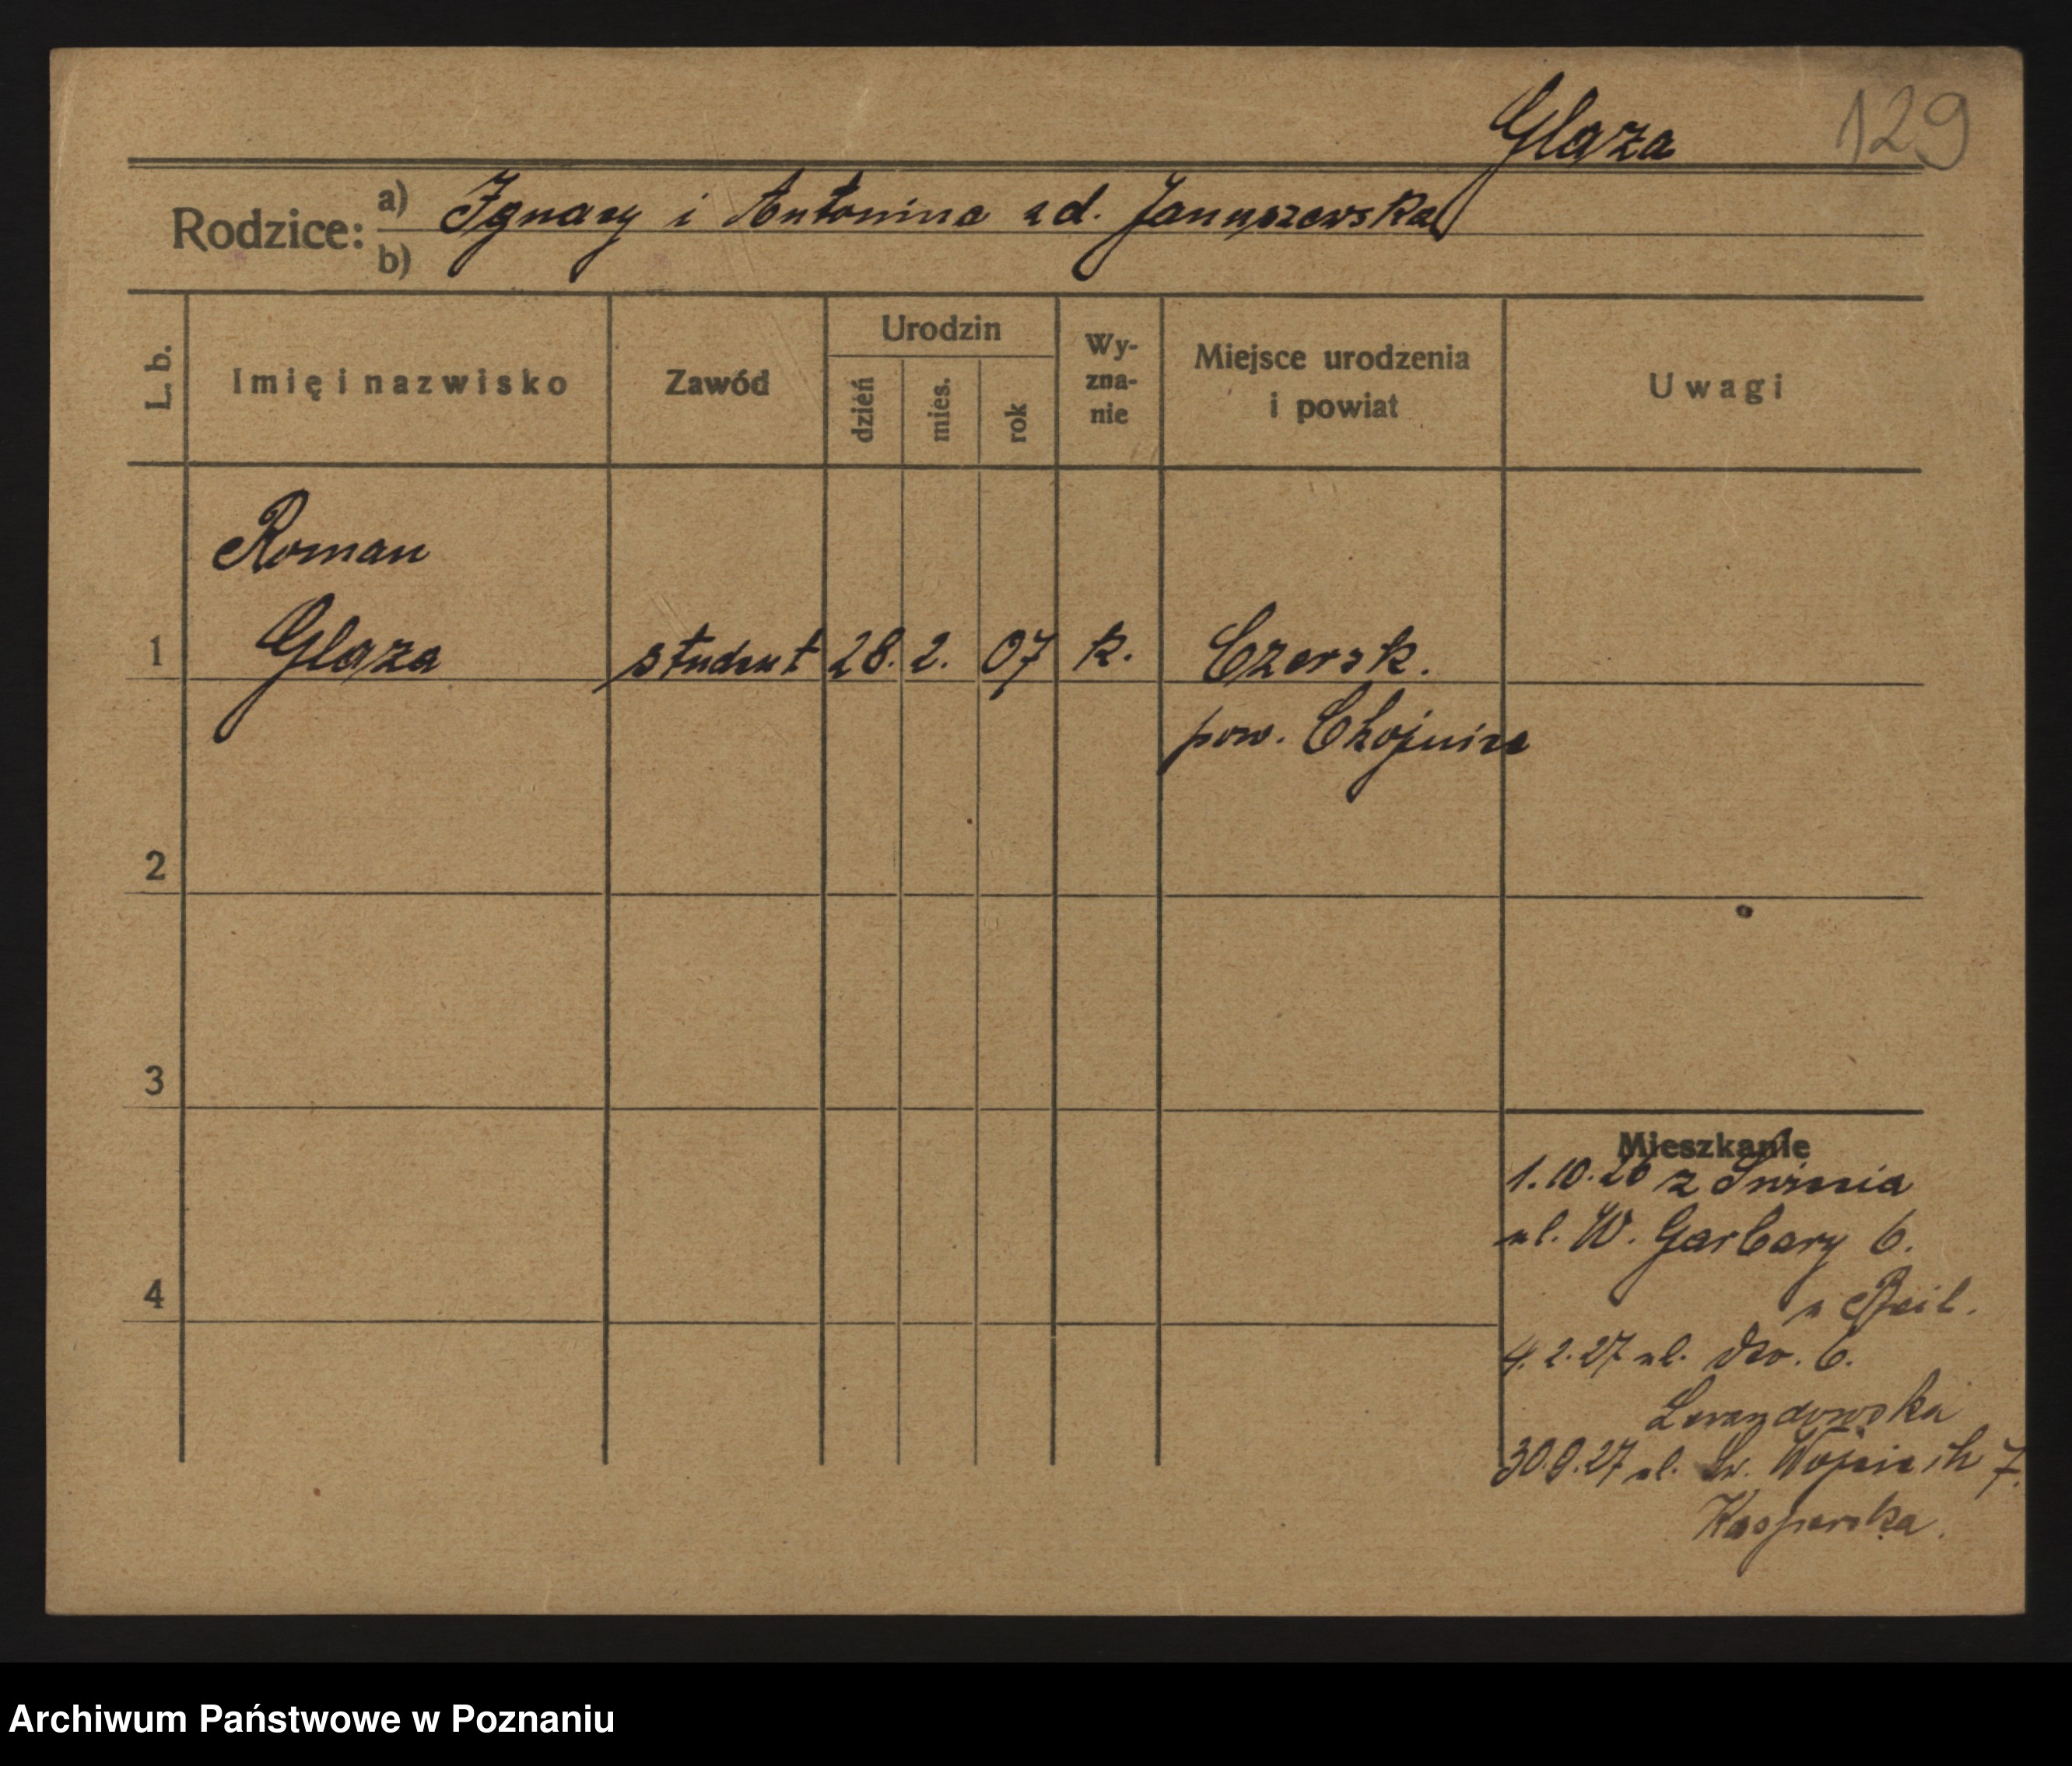 Glaza 129
Rodzice: a) Ignacy i Antonina zd. Januszewska
b)
L. b. Imię i nazwisko Zawód Urodzin dzień mies. rok Wy-zna-nie Miejsce urodzenia i powiat Uwagi
Roman
1 Glaza student 28. 2. 07 k. Czersk.
pow. Chojnice
2
3
Mieszkanie
1.10.26 z
ul. W. Garbary 6.
4
4.2.27 ul. dto. 6.
Lewandowska
30.9.27 ul. Św. Wojciech 7.
Kasperska.
Archiwum Państwowe w Poznaniu